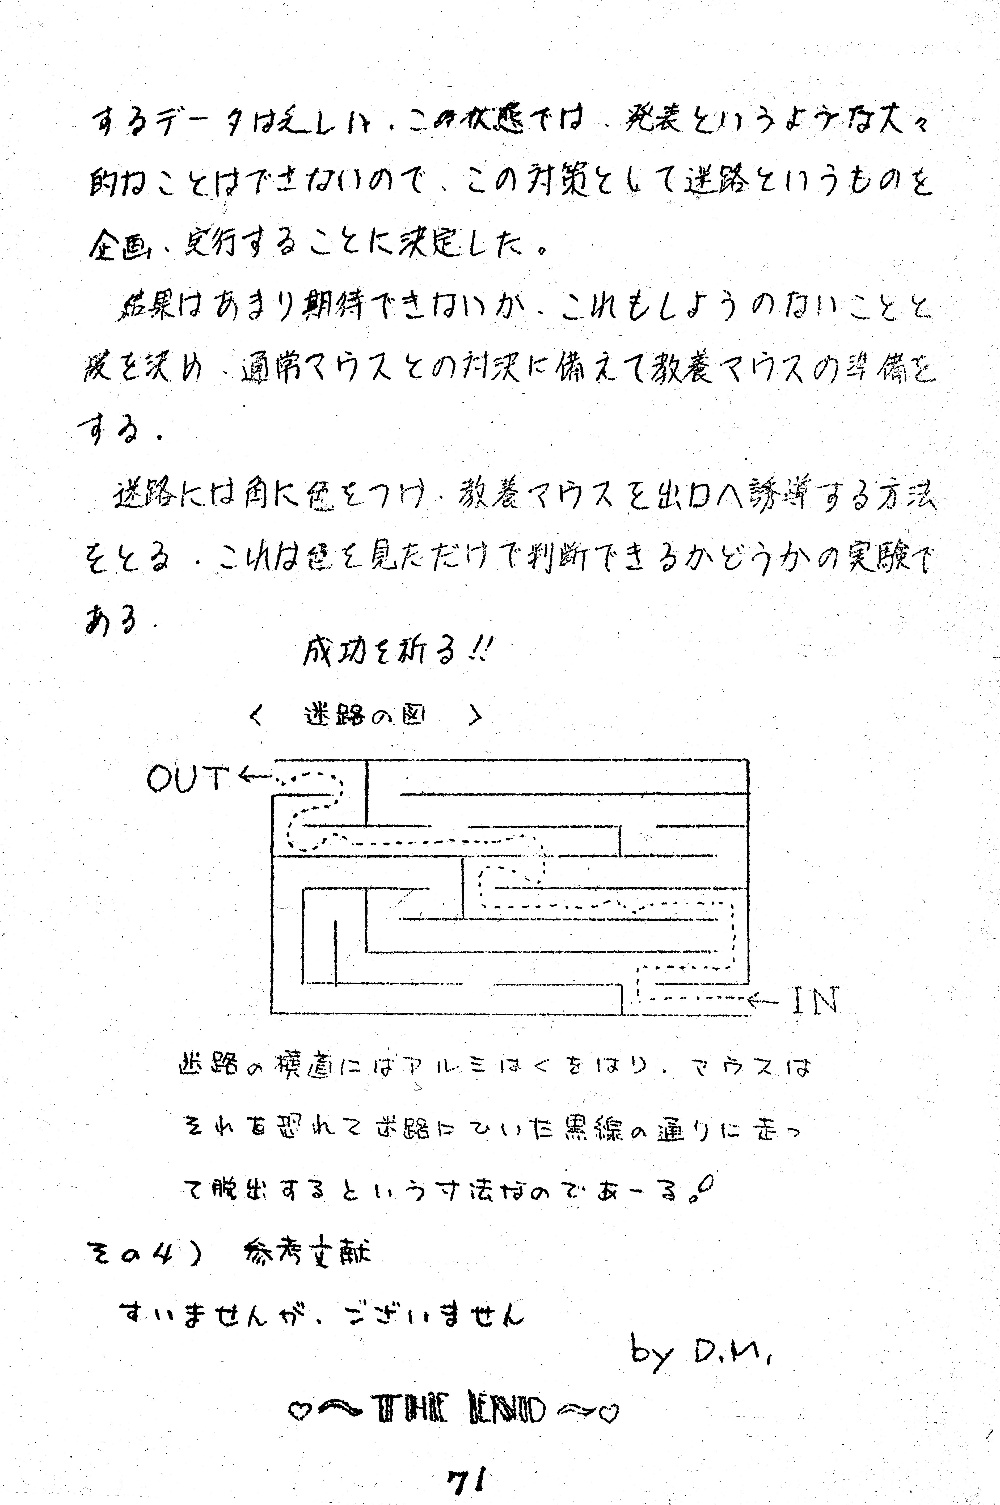 するデータは乏しい、この状態では、発表というような大々
的なことはできないので、この対策として迷路というものを
企画、実行することに決定した。
結果はあまり期待できないが、これもしようのないことと
腹を決め、通常マウスとの対決に備えて教養マウスの準備を
する．
迷路には角に色をつけ、教養マウスを出口へ誘導する方法
をとる．これは色を見ただけで判断できるかどうかの実験で
ある．
成功を祈る!!
〈 迷路の図 〉
OUT←
←IN
迷路の横道にはアルミはくをはり、マウスは
それを恐れて迷路にひいた黒線の通りに走っ
て脱出するという寸法なのであーる。
その4） 参考文献
すいませんが、ございません
by D.M.
♡〜THE END〜♡
71